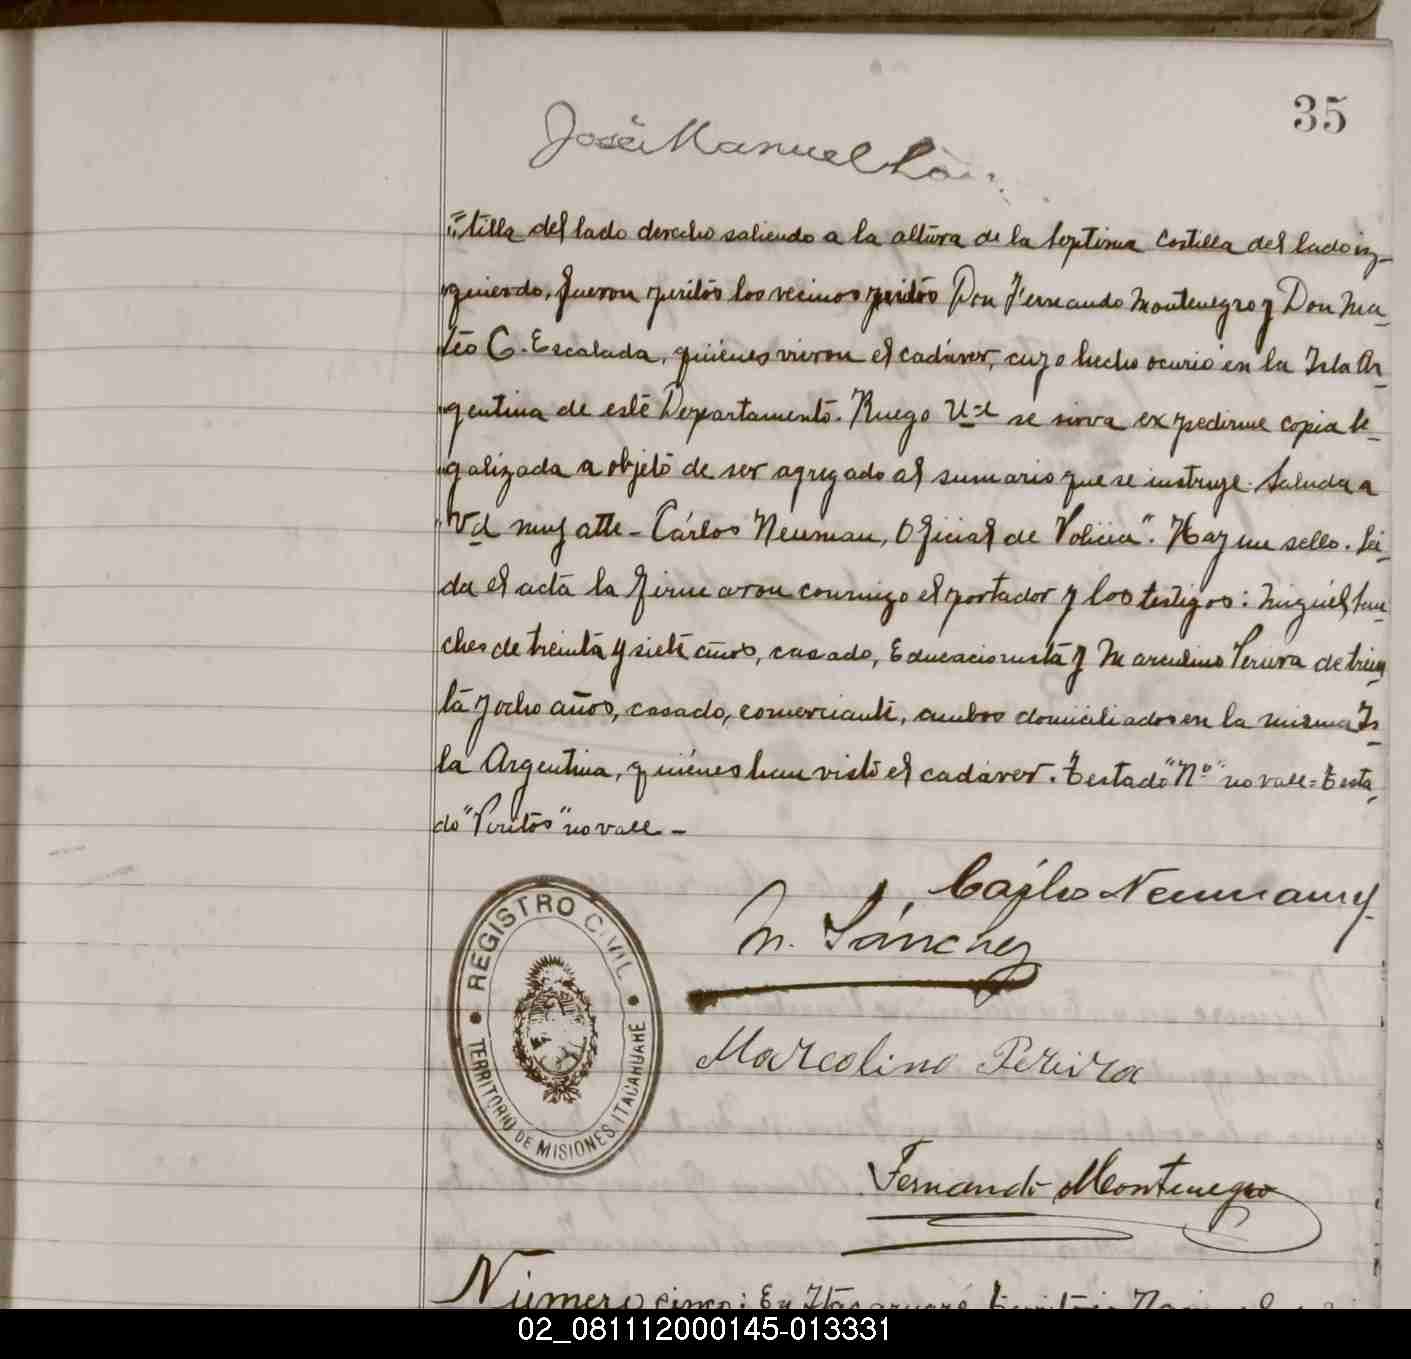 35
José Manuel
"tilla del lado derecho saliendo a la altura de la septima costilla del lado iz-
"quierdo, fueron peritos los vecinos peritos Don Fernando Montenegro y Don Ma-
"teo C. Escalada, quiénes vieron el cadáver, cuyo hecho ocurió en la Isla Ar-
"gentina de esté Departamento. Ruego Ud se sirva expedirme copia le-
"galizada a objeto de ser agregado al sumario que se instruye. Saluda a
"Vd muy atte - Cárlos Neuman, Oficial de Policia". Hay un sello. Lei-
da el acta la firmaron conmigo el portador y los testigos: Miguél San-
ches de treinta y siete años, casado, Educacionista y Marculino Perura de trein-
ta y ocho años, casado, comerciante, ambos domiciliados en la misma Is-
la Argentina, quiénes han visto el cadáver. Testado "Nº" no vale = Testa-
do "Peritos" no vale -
Carlos Neumann
M. Sánchez
REGISTRO CIVIL
TERRITORIO DE MISIONES ITACAHUARE
Marcolino Pereira
Fernando Montenegro
Número cinco: En Itacaruaré, Territorio
02_081112000145-013331